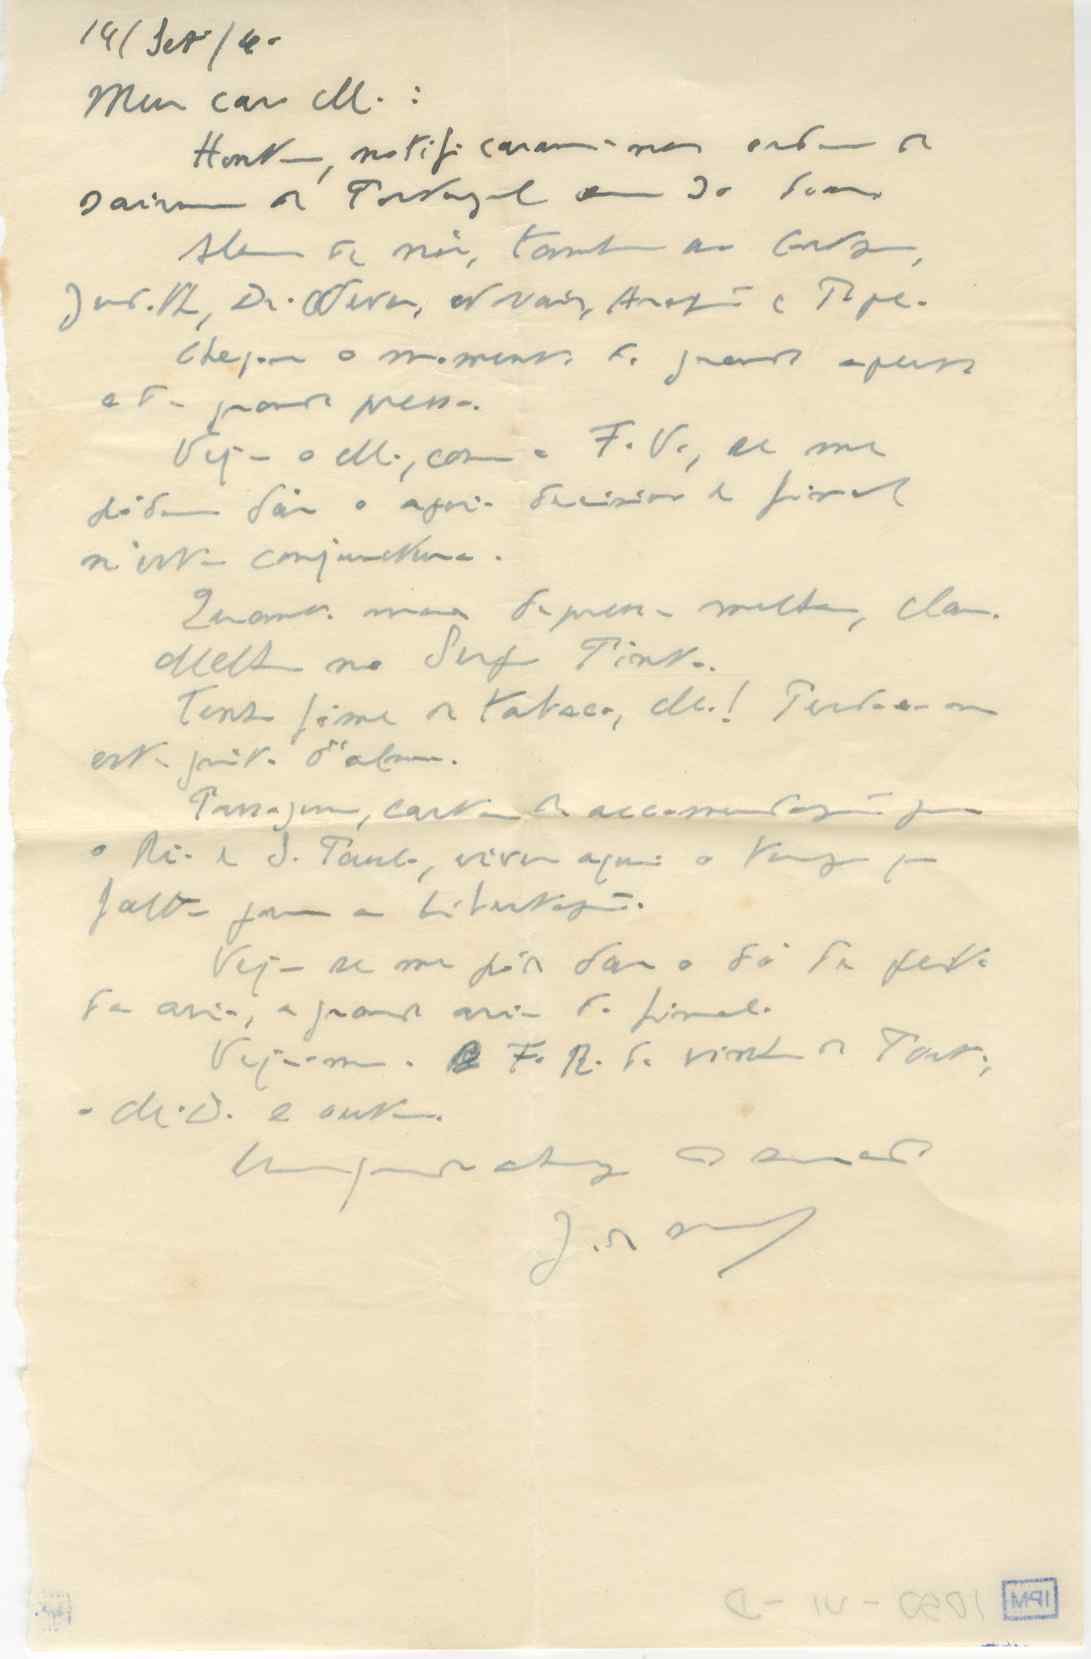 14/Set/40
Meu caro M. :
Hontem, notificaram-nos ordem de
sairmos de Portugal em 30 dias.
Alem de nós, tambem ao Cortesão,
Jud. , Dr. Oliveira, Novais, Aragão e Pipa.
Chegou o momento do grande aperto
e da grande pressa.
Veja o M., com o F. V., se me
pódem dár o apoio decisivo e final
n'esta conjunctura.
Quanto mais depressa melhor, claro.
Melhor no Serpa Pinto.
Tenho fome de tabaco, M.! Perdoe-me
este grito d'alma.
Passagem, cartas de accomendação para
o Rio e S. Paulo, viver aqui o tempo que
falta para a libertação.
Veja se me póde dar o dó de peito
da aria, a grande aria do final.
Veja-me o F. R. do vinho do Porto,
o M. D. e outros.
Um grande abraço do
J. de
1050 - VI - D
IPM